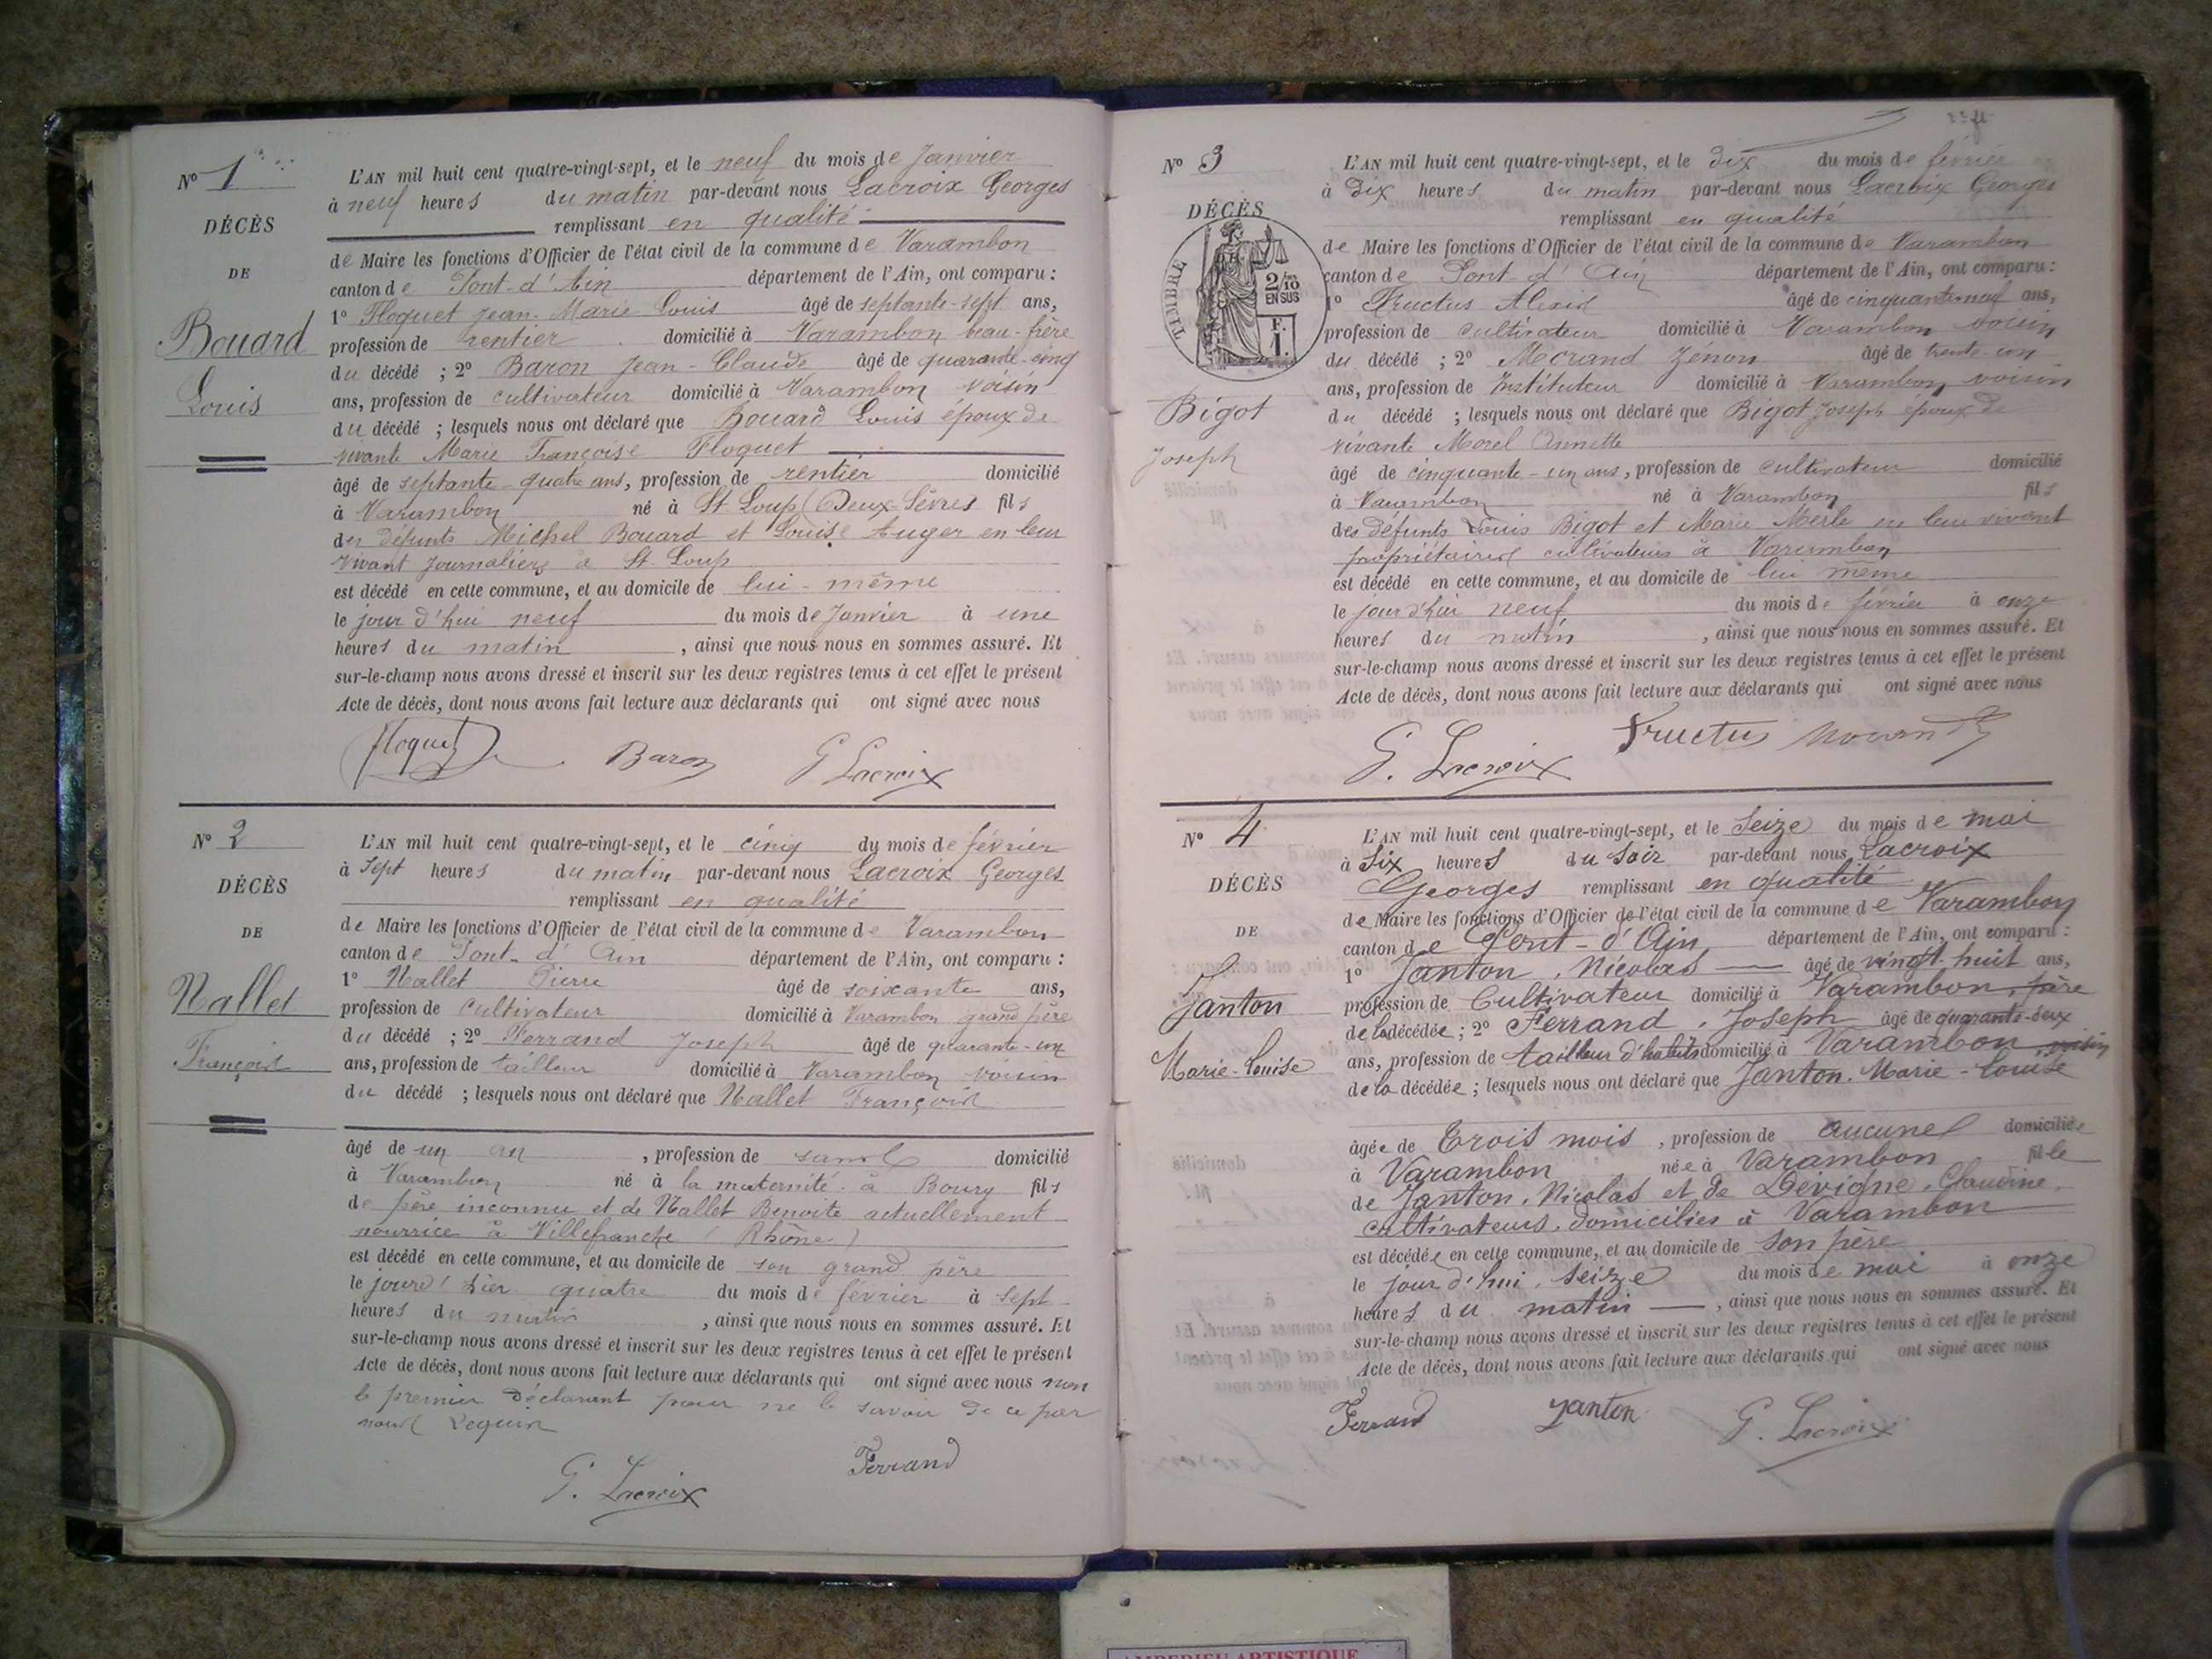 Nº 1
DÉCÈS
DE
Bouard
Louis
L'AN mil huit cent quatre-vingt-sept, et le neuf du mois de Janvier
à neuf heures du matin par-devant nous Lacroix Georges
remplissant en qualité
de Maire les fonctions d'Officier de l'état civil de la commune de Varambon
canton de Pont-d'Ain département de l'Ain, ont comparu :
1º Floquet Jean-Marie Louis âgé de septante-sept ans,
profession de rentier domicilié à Varambon beau-frère
du décédé ; 2º Baron Jean-Claude âgé de quarante-cinq
ans, profession de cultivateur domicilié à Varambon voisin
du décédé ; lesquels nous ont déclaré que Bouard Louis époux de
vivante Marie Françoise Floquet
âgé de septante-quatre ans, profession de rentier domicilié
à Varambon né à St. Loup (Deux-Sèvres fils
des défunts Michel Bouard et Louise Auger en leur
vivant journaliers à St. Loup
est décédé en cette commune, et au domicile de lui-même
le jour d'hui neuf du mois de Janvier à une
heures du matin, ainsi que nous nous en sommes assuré. Et
sur-le-champ nous avons dressé et inscrit sur les deux registres tenus à cet effet le présent
Acte de décès, dont nous avons fait lecture aux déclarants qui ont signé avec nous
Floquet Baron G Lacroix
Nº 2
DÉCÈS
DE
Nallet
François
L'AN mil huit cent quatre-vingt-sept, et le cinq du mois de février
à sept heures du matin par-devant nous Lacroix Georges
remplissant en qualité
de Maire les fonctions d'Officier de l'état civil de la commune de Varambon
canton de Pont-d'Ain département de l'Ain, ont comparu :
1º Nallet Pierre âgé de soixante ans,
profession de cultivateur domicilié à Varambon grand père
du décédé ; 2º Ferrand Joseph âgé de quarante-un
ans, profession de tailleur domicilié à Varambon voisin
du décédé ; lesquels nous ont déclaré que Nallet François
âgé de un an, profession de domicilié
à Varambon né à la maternité à Bourg fils
de père inconnu et de Nallet Benoite actuellement
nourrice à Villefranche (Rhône)
est décédé en cette commune, et au domicile de son grand père
le jour d'hier quatre du mois de février à sept
heures du matin, ainsi que nous nous en sommes assuré. Et
sur-le-champ nous avons dressé et inscrit sur les deux registres tenus à cet effet le présent
Acte de décès, dont nous avons fait lecture aux déclarants qui ont signé avec nous non
le premier déclarant pour ne le savoir de ce par
nous requis
G. Lacroix Ferrand
Nº 3
DÉCÈS
TIMBRE
2/10
EN SUS
Bigot
Joseph
L'AN mil huit cent quatre-vingt-sept, et le dix du mois de février
à dix heures du matin par-devant nous Lacroix Georges
remplissant en qualité
de Maire les fonctions d'Officier de l'état civil de la commune de Varambon
canton de Pont-d'Ain département de l'Ain, ont comparu :
1º Fructus Alexis âgé de cinquante-neuf ans,
profession de cultivateur domicilié à Varambon voisin
du décédé ; 2º Morand Zénon âgé de trente-un
ans, profession de Instituteur domicilié à Varambon voisin
du décédé ; lesquels nous ont déclaré que Bigot Joseph époux de
vivante Morel Annette
âgé de cinquante-un ans, profession de cultivateur domicilié
à Varambon né à Varambon fils
des défunts Louis Bigot et Marie Merle en leur vivant
propriétaires cultivateurs à Varambon
est décédé en cette commune, et au domicile de lui même
le jour d'hui neuf du mois de février à onze
heures du matin, ainsi que nous nous en sommes assuré. Et
sur-le-champ nous avons dressé et inscrit sur les deux registres tenus à cet effet le présent
Acte de décès, dont nous avons fait lecture aux déclarants qui ont signé avec nous
G. Lacroix Fructus Morand Z
Nº 4
DÉCÈS
DE
Janton
Marie-Louise
L'AN mil huit cent quatre-vingt-sept, et le Seize du mois de mai
à Six heures du Soir par-devant nous Lacroix
Georges remplissant en qualité
de Maire les fonctions d'Officier de l'état civil de la commune de Varambon
canton de Pont-d'Ain département de l'Ain, ont comparu :
1º Janton, Nicolas âgé de vingt-huit ans,
profession de Cultivateur domicilié à Varambon, père
de la décédée ; 2º Ferrand, Joseph âgé de quarante-deux
ans, profession de tailleur d'habits domicilié à Varambon voisin
de la décédée ; lesquels nous ont déclaré que Janton, Marie-Louise
âgée de Trois mois, profession de aucune domiciliée
à Varambon née à Varambon fille
de Janton, Nicolas et de Devigne, Claudine
cultivateurs, domiciliés à Varambon
est décédée en cette commune, et au domicile de son père
le jour d'hui, seize du mois de mai à onze
heures du matin, ainsi que nous nous en sommes assuré. Et
sur-le-champ nous avons dressé et inscrit sur les deux registres tenus à cet effet le présent
Acte de décès, dont nous avons fait lecture aux déclarants qui ont signé avec nous
Ferrand Janton G. Lacroix
AMBERIEU ARTISTIQUE